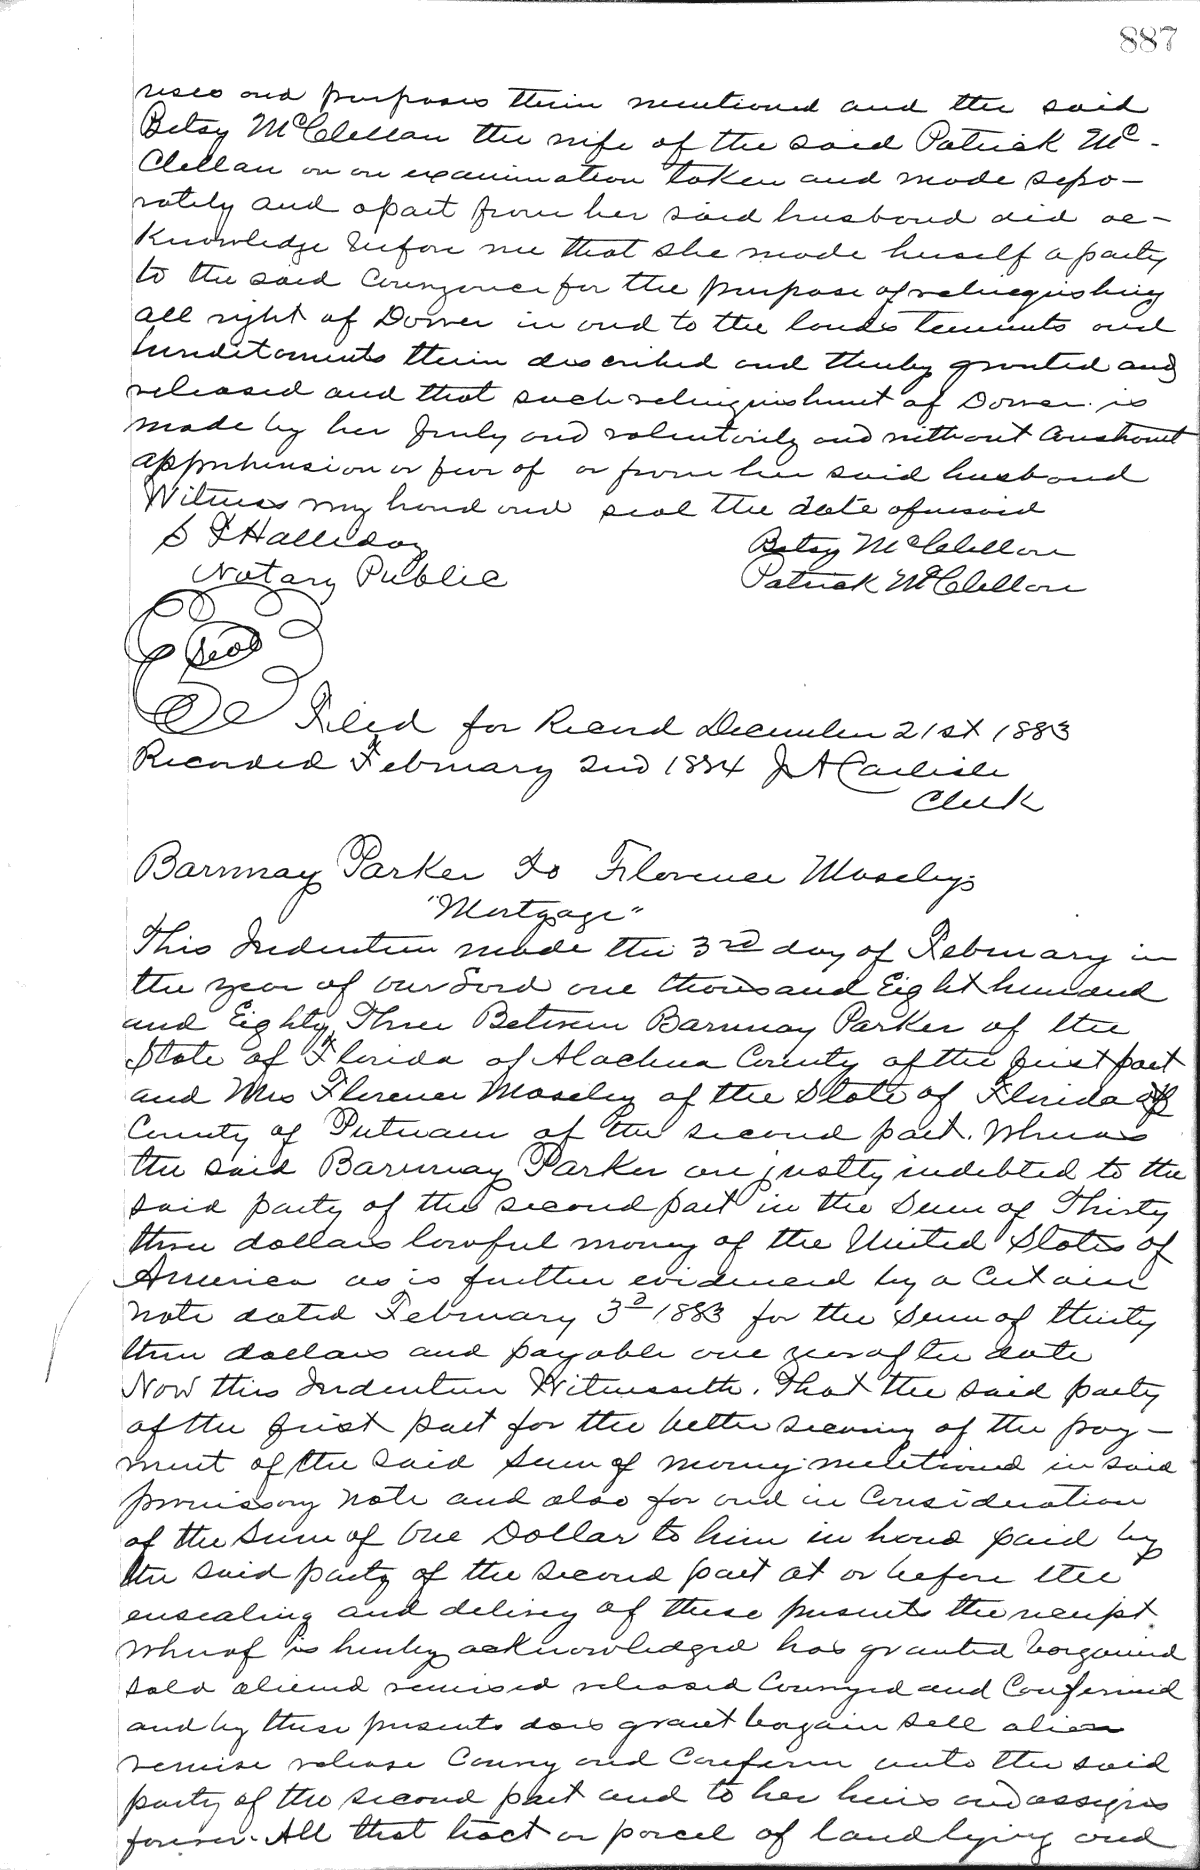 887
uses and purposes therein mentioned and the said
Betsy McClellan the wife of the said Patrick Mc-
Clellan on an examination taken and made sepa-
rately and apart from her said husband did ac-
knowledge before me that she made herself a party
to the said Conveyance for the purpose of relinquishing
all right of Dower in and to the lands tenements and
hereditaments therein described and thereby granted and
released and that such relinquishment of Dower is
made by her freely and voluntarily and without Constraint
apprehension or fear of or from her said husband
Witness my hand and seal the date aforesaid
S F Halliday Betsy McClellan
Notary Public Patrick McClellan
Seal
Filed for Record December 21st 1883
Recorded February 2nd 1884 J A Carlisle
Clerk
Barnnay Parker To Florence Moseley
"Mortgage"
This Indenture made the 3rd day of February in
the year of our Lord one thousand Eight hundred
and Eighty Three Between Barnnay Parker of the
State of Florida of Alachua County of the first part
and Mrs Florence Moseley of the State of Florida of
County of Putnam of the second part. Whereas
the said Barnnay Parker are justly indebted to the
said party of the second part in the Sum of Thirty
three dollars lawful money of the United States of
America as is further evidenced by a Certain
Note dated February 3d 1883 for the Sum of thirty
three dollars and payable one year after date
Now this Indenture Witnesseth. That the said party
of the first part for the better securing of the pay-
ment of the said Sum of money mentioned in said
promissory Note and also for and in Consideration
of the Sum of One Dollar to him in hand paid by
the said party of the second part at or before the
ensealing and delivery of these presents the receipt
Whereof is hereby acknowledged has granted bargained
sold aliened remised released Conveyed and Confirmed
and by these presents does grant bargain sell alien
remise release Convey and Confirm unto the said
party of the second part and to her heirs and assigns
forever. All that tract or parcel of land lying and